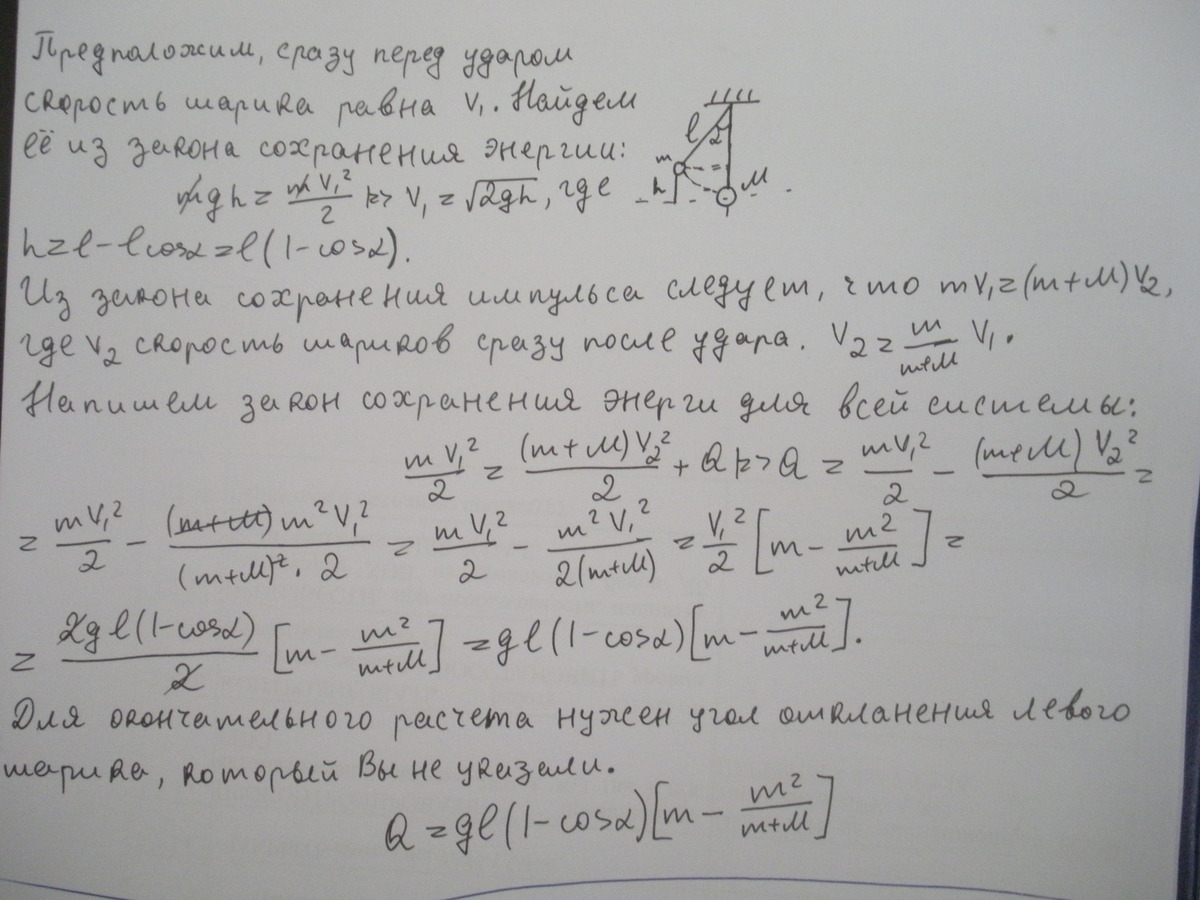 Предположим, сразу перед ударом
скорость шарика равна V₁. Найдем
её из закона сохранения энергии:
mgh = mV₁²/2 => V₁ = √2gh, где
h = l - l cosα = l(1 - cosα).
l α
m
h
M
Из закона сохранения импульса следует, что mV₁ = (m+M)V₂,
где V₂ скорость шариков сразу после удара. V₂ = m/(m+M) V₁.
Напишем закон сохранения энерги для всей системы:
mV₁²/2 = (m+M)V₂²/2 + Q => Q = mV₁²/2 - (m+M)V₂²/2 =
= mV₁²/2 - (m+M)m²V₁²/((m+M)²·2) = mV₁²/2 - m²V₁²/(2(m+M)) = V₁²/2 [m - m²/(m+M)] =
= 2gl(1-cosα)/2 [m - m²/(m+M)] = gl(1-cosα)[m - m²/(m+M)].
Для окончательного расчета нужен угол откланения левого
шарика, который Вы не указали.
Q = gl(1-cosα)[m - m²/(m+M)]